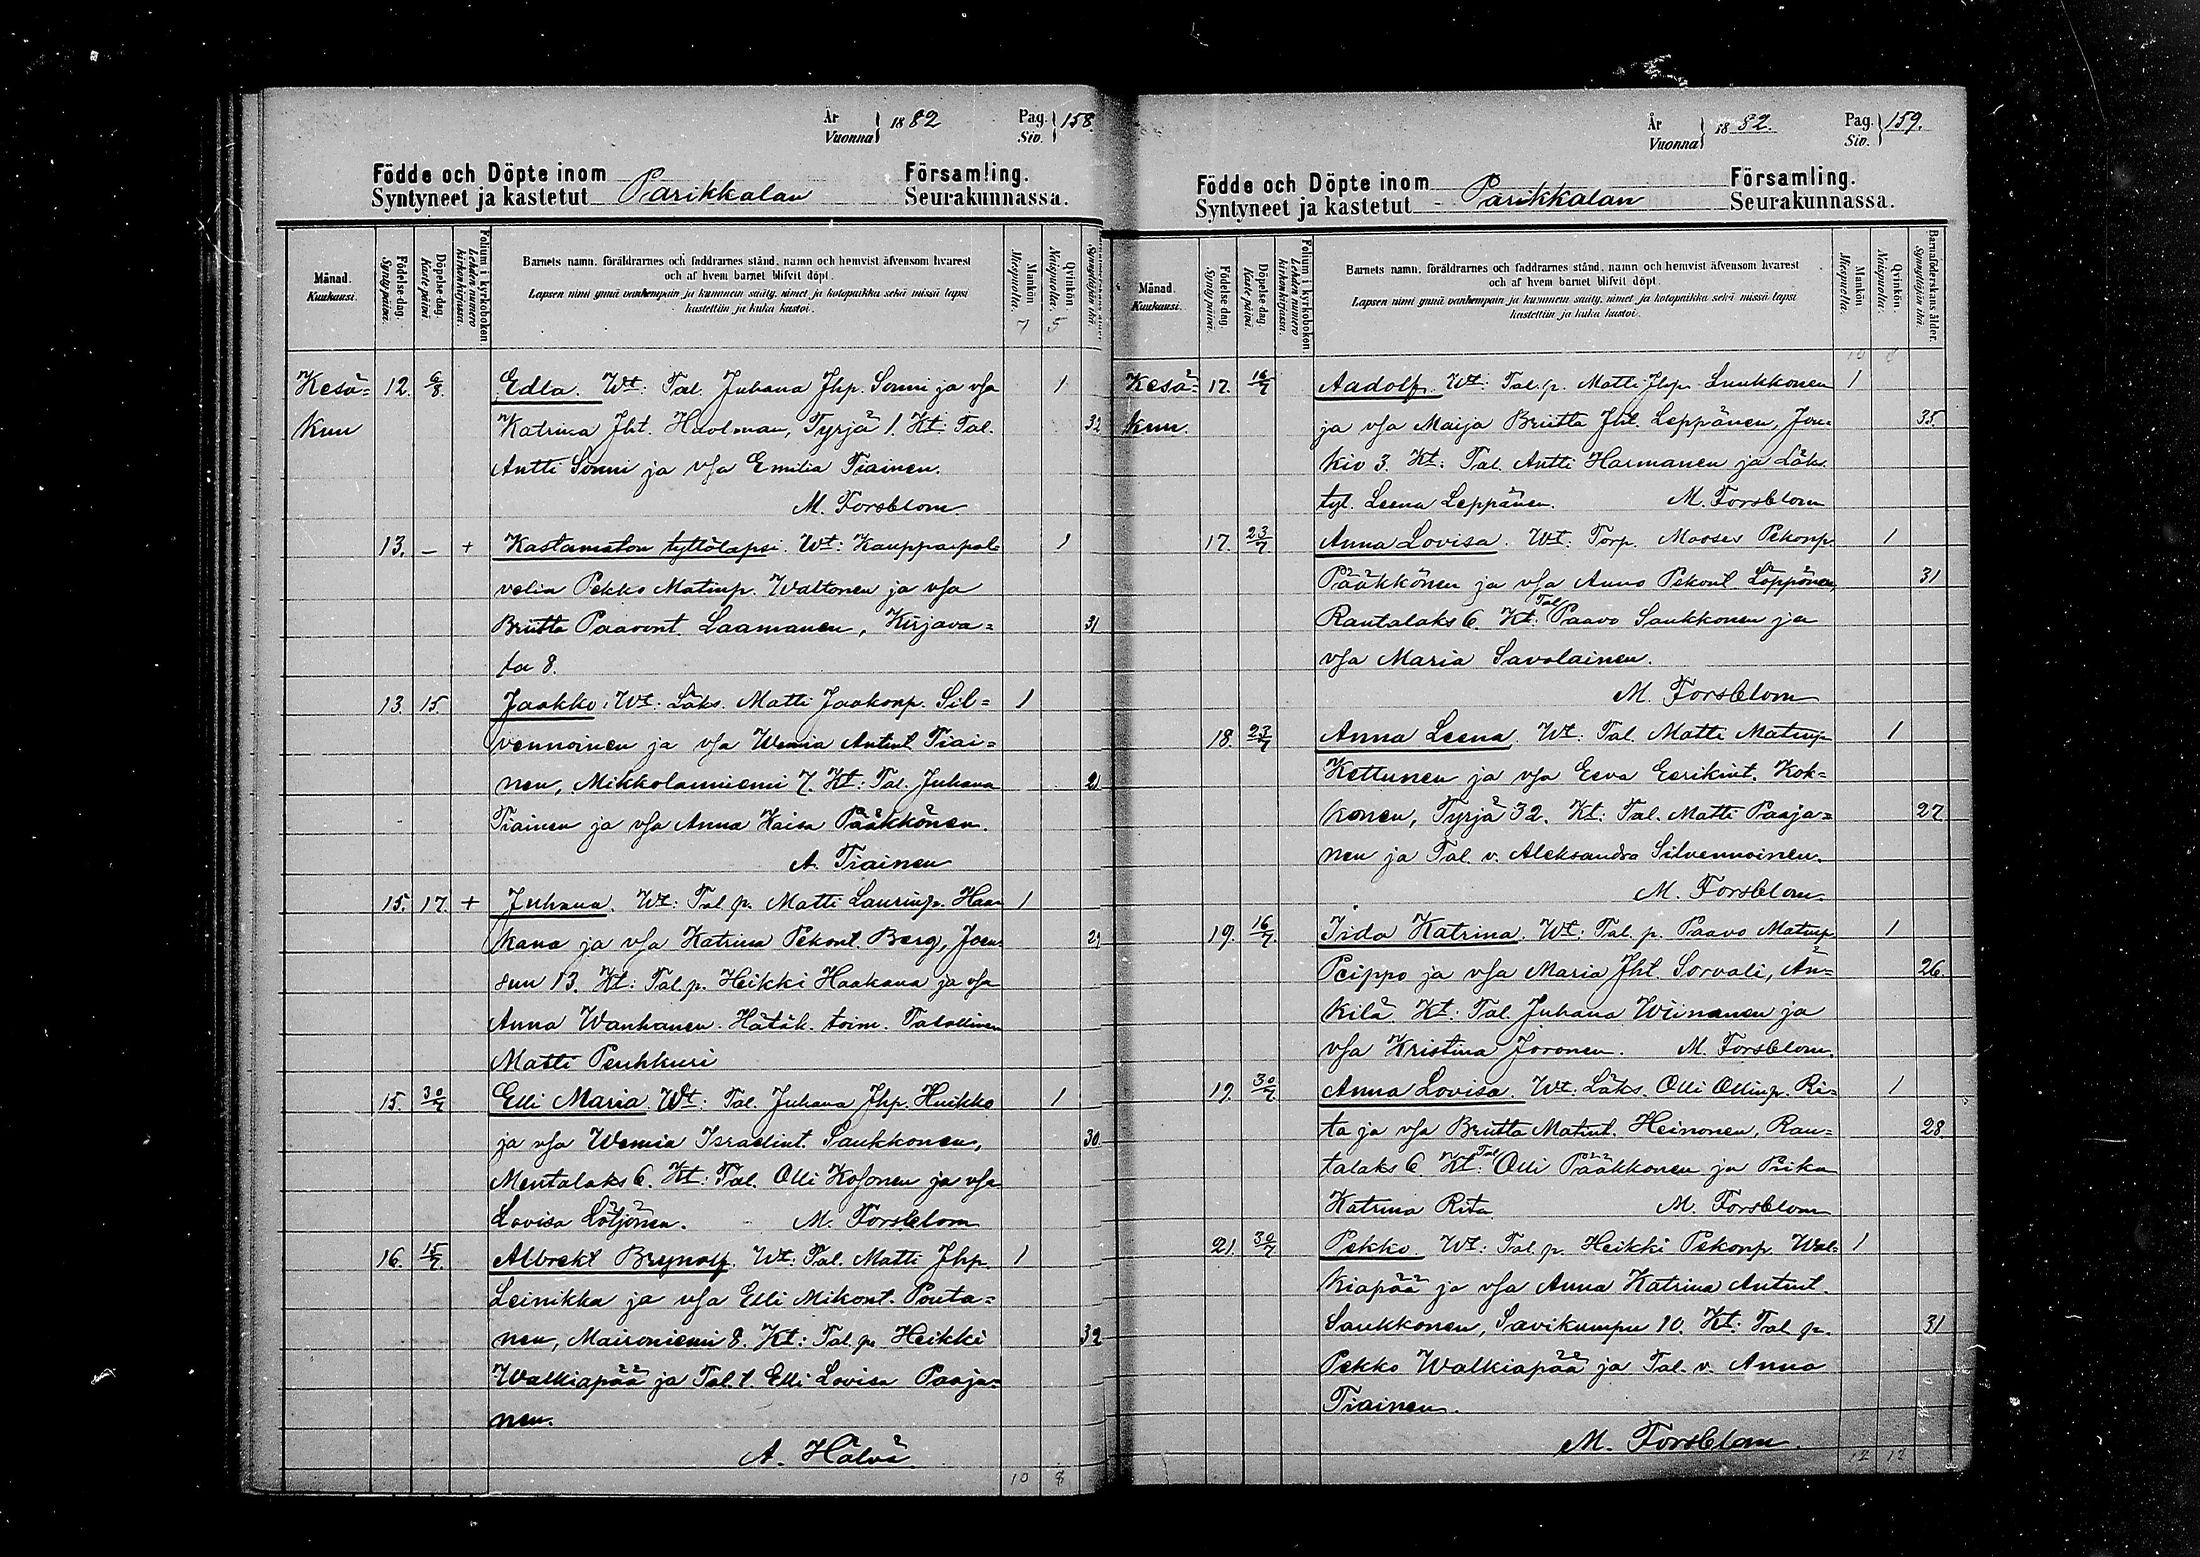 År Vuonna 1882 Pag. Siv. 158.
Födde och Döpte inom Församling.
Syntyneet ja kastetut Parikkalan Seurakunnassa.
Månad. Kuukausi.
Födelse-dag. Synty päivä.
Döpelse-dag. Kaste päivä
Folium i kyrkoboken. Lehden numero kirkonkirjassa.
Barnets namn, föräldrarnes och faddrarnes stånd, namn och hemvist äfvensom hvarest
och af hvem barnet blifvit döpt.
Lapsen nimi ynnä vanhempain ja kummein sääty, nimet ja kotopaikka sekä missä lapsi
kastettiin ja kuka kastoi.
Mankön Miespuolta.
Qvinkön. Naispuolta.
7 5
Kesä= 12. 6/8. Edla. Wt: Tal. Juhana Jhp. Sonni ja vsa 1
kuu Katrina Jht. Haolman, Tyrjä 1. Kt: Tal. 32
Antti Sonni ja vsa Emilia Tiainen.
M. Forsblom.
13. — + Kastamaton tyttölapsi. Wt: Kauppapal= 1
velia Pekko Matinp. Waltonen ja vsa
Briitta Paavont. Laamanen, Kirjava= 31
la 8.
13. 15. Jaakko. Wt: Läks. Matti Jaakonp. Sil= 1
vennoinen ja vsa Wemia Antint. Tiai=
nen, Mikkolanniemi 7. Kt: Tal. Juhana 21
Tiainen ja vsa Anna Kaisa Pääkkönen.
A. Tiainen
15. 17. + Juhana. Wt: Tal. p. Matti Laurinp. Haa= 1
kana ja vsa Katrina Pekont. Berg, Joen= 29
suu 13. Kt: Tal. p. Heikki Haakana ja vsa
Anna Wanhanen. Hätäk. toim. Talollinen
Matti Penkkuri
15. 30/7 Elli Maria. Wt: Tal. Juhana Jhp. Huikko 1
ja vsa Wemia Israelint. Saukkonen, 30
Mentalaks 6. Kt: Tal. Olli Kosonen ja vsa
Lovisa Lötjönen. M. Forsblom
16. 15/7. Albrekt Brynolf. Wt: Tal. Matti Jhp. 1
Leinikka ja vsa Elli Mikont. Pouta=
nen, Maironiemi 8. Kt: Tal. p. Heikki 32
Walkiapää ja Tal. t. Elli Lovisa Paaja=
nen.
A. Hälvä.
10 8
År Vuonna 1882. Pag. Siv. 159.
Födde och Döpte inom Församling.
Syntyneet ja kastetut Parikkalan Seurakunnassa.
Månad. Kuukausi.
Födelse-dag. Synty päivä.
Döpelse-dag. Kaste päivä
Folium i kyrkoboken. Lehden numero kirkonkirjassa.
Barnets namn, föräldrarnes och faddrarnes stånd, namn och hemvist äfvensom hvarest
och af hvem barnet blifvit döpt.
Lapsen nimi ynnä vanhempain ja kummein sääty, nimet ja kotopaikka sekä missä lapsi
kastettiin ja kuka kastoi.
Mankön Miespuolta.
Qvinkön. Naispuolta.
Barnaföderskans ålder. Synnyttäjän ikä.
10 8
Kesä= 17. 16/7 Aadolf. Wt: Tal. p. Matti Jhp. Luukkonen 1
kuu. ja vsa Maija Briitta Jht. Leppänen, Jou= 35.
kio 3. Kt: Tal. Antti Harmanen ja Läks.
tyt. Leena Leppänen. M. Forsblom
17. 23/7 Anna Lovisa. Wt: Torp. Mooses Pekonp. 1
Pääkkönen ja vsa Anna Pekont. Löppönen, 31
Rautalaks 6. Kt: Tal. Paavo Saukkonen ja
vsa Maria Savolainen.
M. Forsblom
18. 23/7 Anna Leena. Wt: Tal. Matti Matinp. 1
Kettunen ja vsa Eeva Eerikint. Kok=
konen, Tyrjä 32. Kt: Tal. Matti Paaja= 27.
nen ja Tal. v. Aleksandra Silvennoinen.
M. Forsblom.
19. 16/7. Iida Katrina. Wt: Tal. p. Paavo Matinp. 1
Peippo ja vsa Maria Jht. Sorvali, Än= 26.
kilä. Kt: Tal. Juhana Wiinanen ja
vsa Kristina Joronen. M. Forsblom.
19. 30/7. Anna Lovisa. Wt: Läks. Olli Ollinp. Ri= 1
ta ja vsa Briitta Matint. Heinonen, Rau= 28.
talaks 6 Kt: Tal. Olli Pääkkönen ja Piika
Katrina Rita M. Forsblom
21. 30/7 Pekko. Wt: Tal. p. Heikki Pekonp. Wal= 1
kiapää ja vsa Anna Katrina Antint.
Saukkonen, Savikumpu 10. Kt: Tal. p. 31
Pekko Walkiapää ja Tal. v. Anna
Tiainen.
M. Forsblom.
12 12